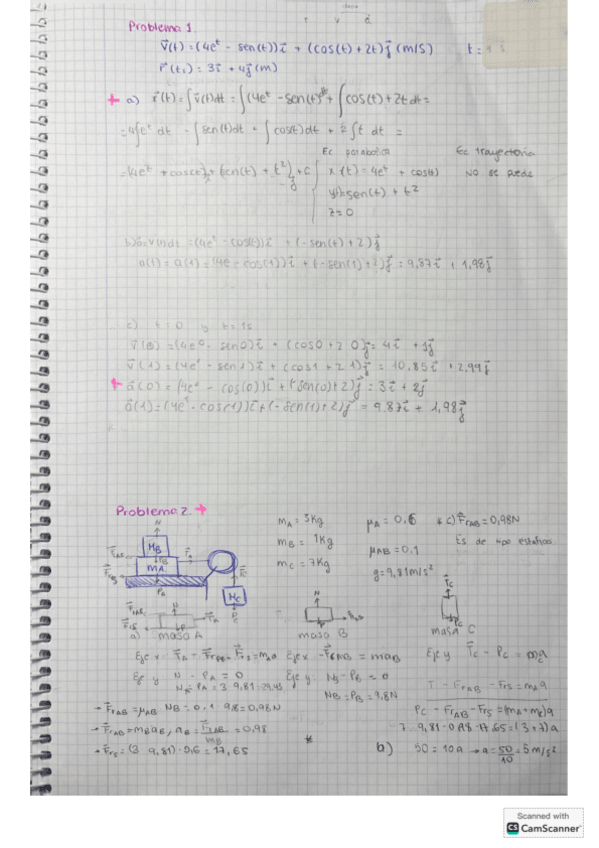 Problema 1.
v⃗(t) = (4eᵗ - sen(t)) i⃗ + (cos(t) + 2t) j⃗ (m/s)    t = 1s
r⃗(t₀) = 3i⃗ + 4j⃗ (m)
+ a) r⃗(t) = ∫ v⃗(t)dt = ∫(4eᵗ - sen(t)) dt + ∫ cos(t) + 2t dt =
= 4∫eᵗ dt - ∫sen(t)dt + ∫cos(t)dt + 2∫t dt =
Ec parabolica    Ec trayectoria
= (4eᵗ + cos(t)) i⃗ + (sen(t) + t²) j⃗ + C    x(t) = 4eᵗ + cos(t)    NO se puede
y(t) = sen(t) + t²
z = 0
b) a⃗ = v⃗(t)dt = (4eᵗ - cos(t)) i⃗ + (-sen(t) + 2) j⃗
a(t) = a(1) = (4e - cos(1)) i⃗ + (-sen(1) + 2) j⃗ = 9,87 i⃗ + 1,98 j⃗
c) t = 0 y t = 1s
v⃗(0) = (4e⁰ - sen0) i⃗ + (cos0 + 2·0) j⃗ = 4i⃗ + 1j⃗
v⃗(1) = (4eᵗ - sen1) i⃗ + (cos1 + 2·1) j⃗ = 10,85 i⃗ + 2,99 j⃗
+ a⃗(0) = (4eᵗ - cos(0)) i⃗ + (-sen(0) + 2) j⃗ = 3i⃗ + 2j⃗
a⃗(1) = (4eᵗ - cos(1)) i⃗ + (-sen(1) + 2) j⃗ = 9,87 i⃗ + 1,98 j⃗
Problema 2. +
mA = 3kg    μA = 0.6    * c) F⃗rAB = 0,98N
mB = 1kg    μAB = 0.1    Es de tipo estatico
mC = 7kg    g = 9,81 m/s²
N
MB
MA
MC
PA
PC
a) masa A    masa B    masa C
Eje x: F⃗A - F⃗rAB - F⃗rS = mAa    Eje x: -F⃗rAB = maB    Eje y T⃗C - PC = mCa
Eje y N - PA = 0    Eje y: NB - PB = 0    T - FrAB - FrS = mAa
NA = PA = 3·9,81 = 29,43    NB = PB = 9,8N
→ F⃗rAB = μAB · NB = 0,1 · 9,8 = 0,98N    PC - FrAB - FrS = (mA + mC)a
→ F⃗rAB = mBaB, aB = F⃗rAB/mB = 0,98    7 · 9,81 - 0,98 - 17,65 = (3+7)a
→ FrS = (3·9,81)·0,6 = 17,65    *    b) 50 = 10a → a = 50/10 = 5 m/s²
Scanned with
CS CamScanner